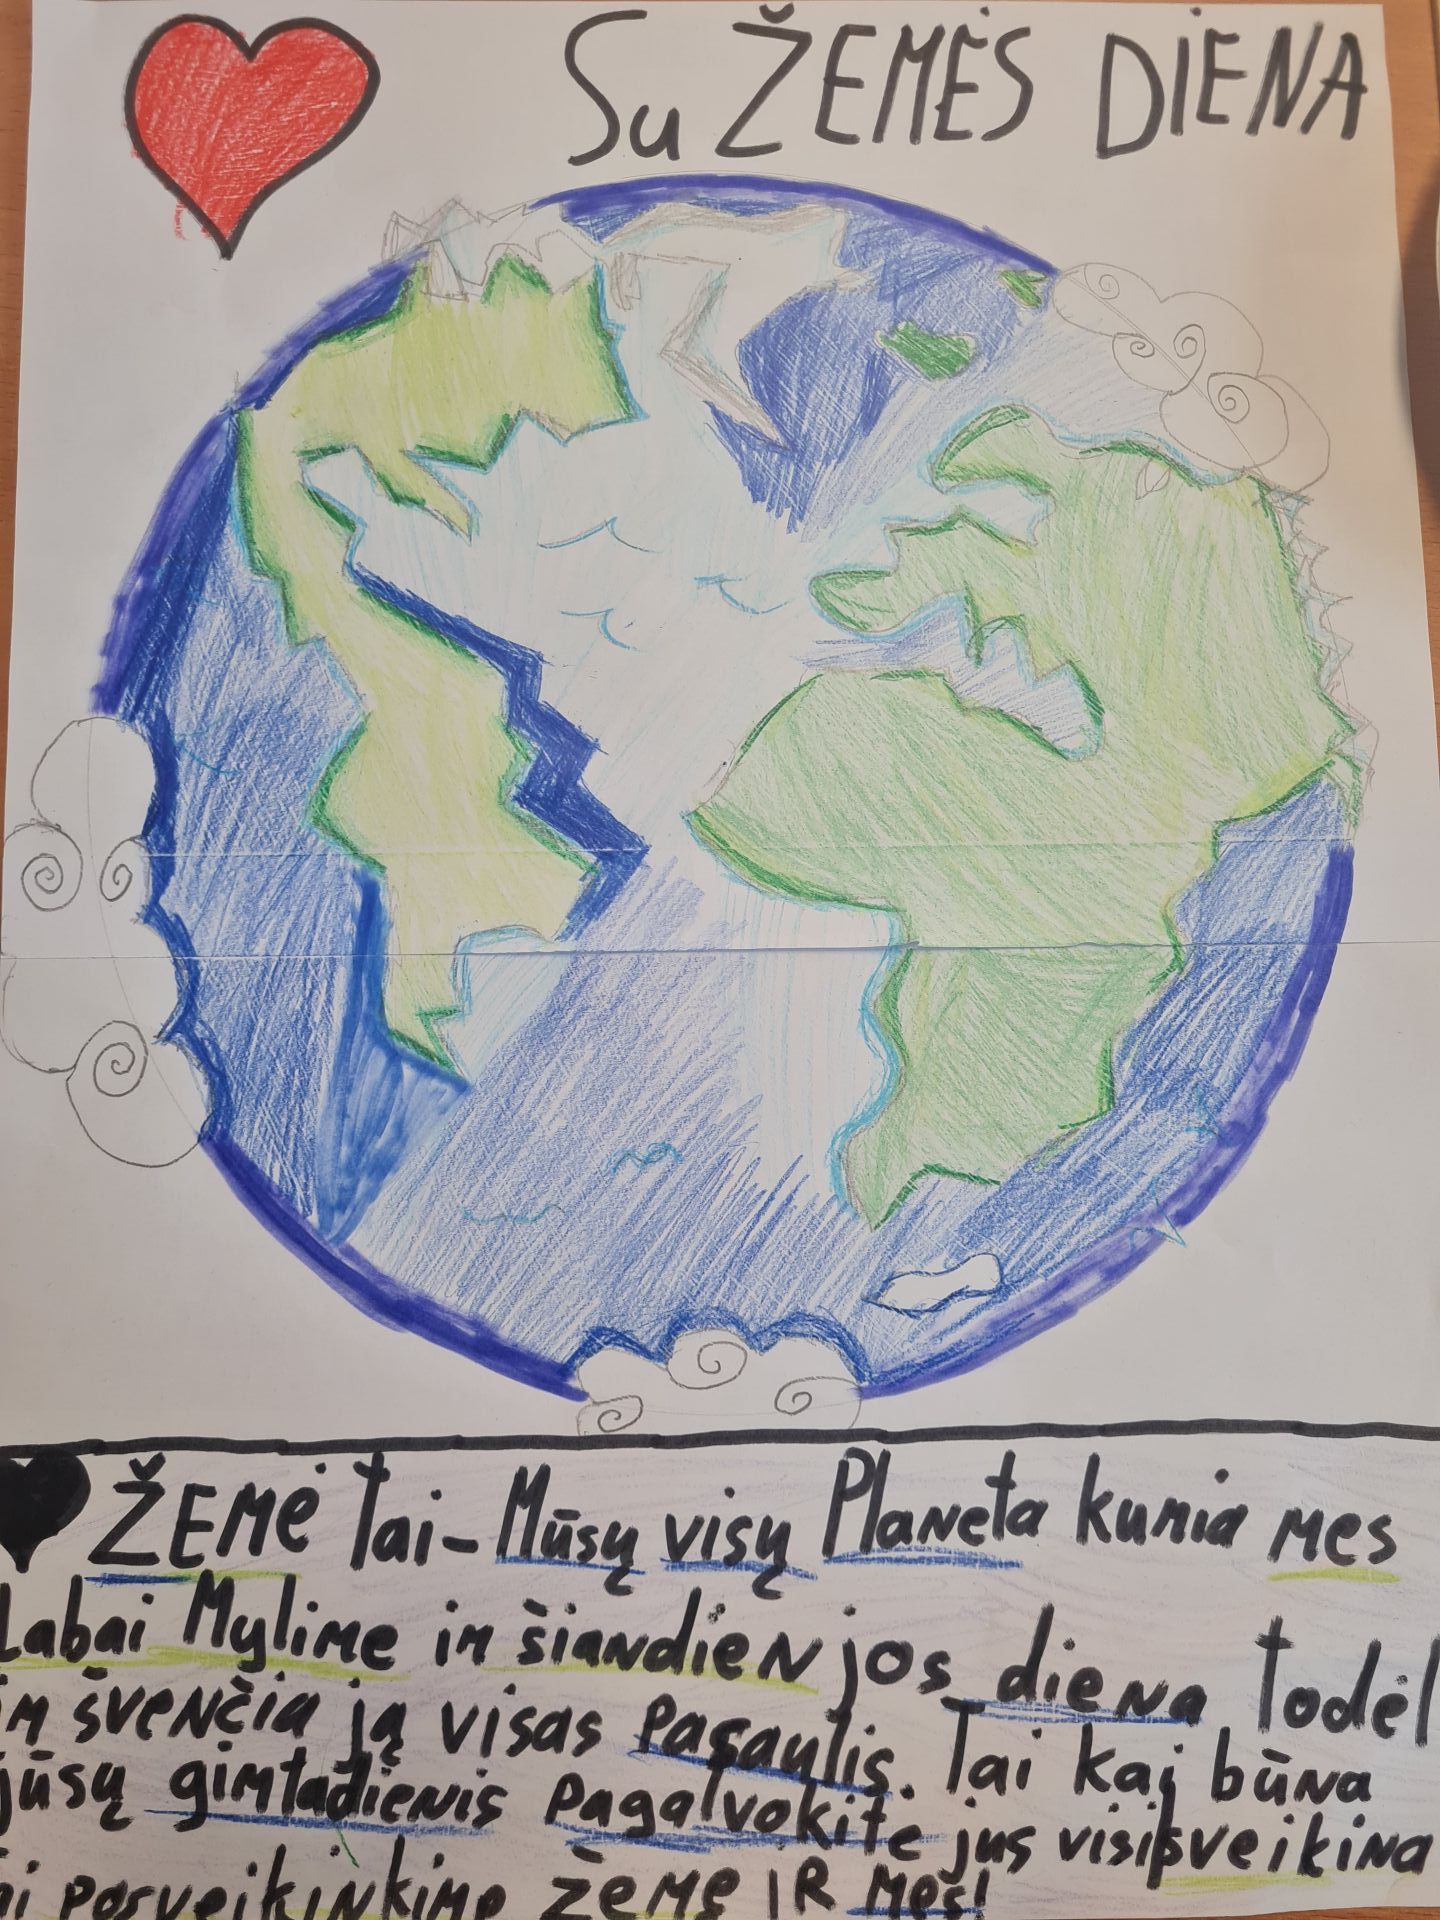 Su ŽEMĖS DIENA
ŽEMė Tai-Mūsų visų Planeta kuria mes
Labai Mylime ir šiandien jos diena Todėl
ir švenčia ją visas pasaulis. Tai kaj būna
jūsų gimtadienis pagalvokite jus visi sveikina
posveikinkime žemę IR Mes!